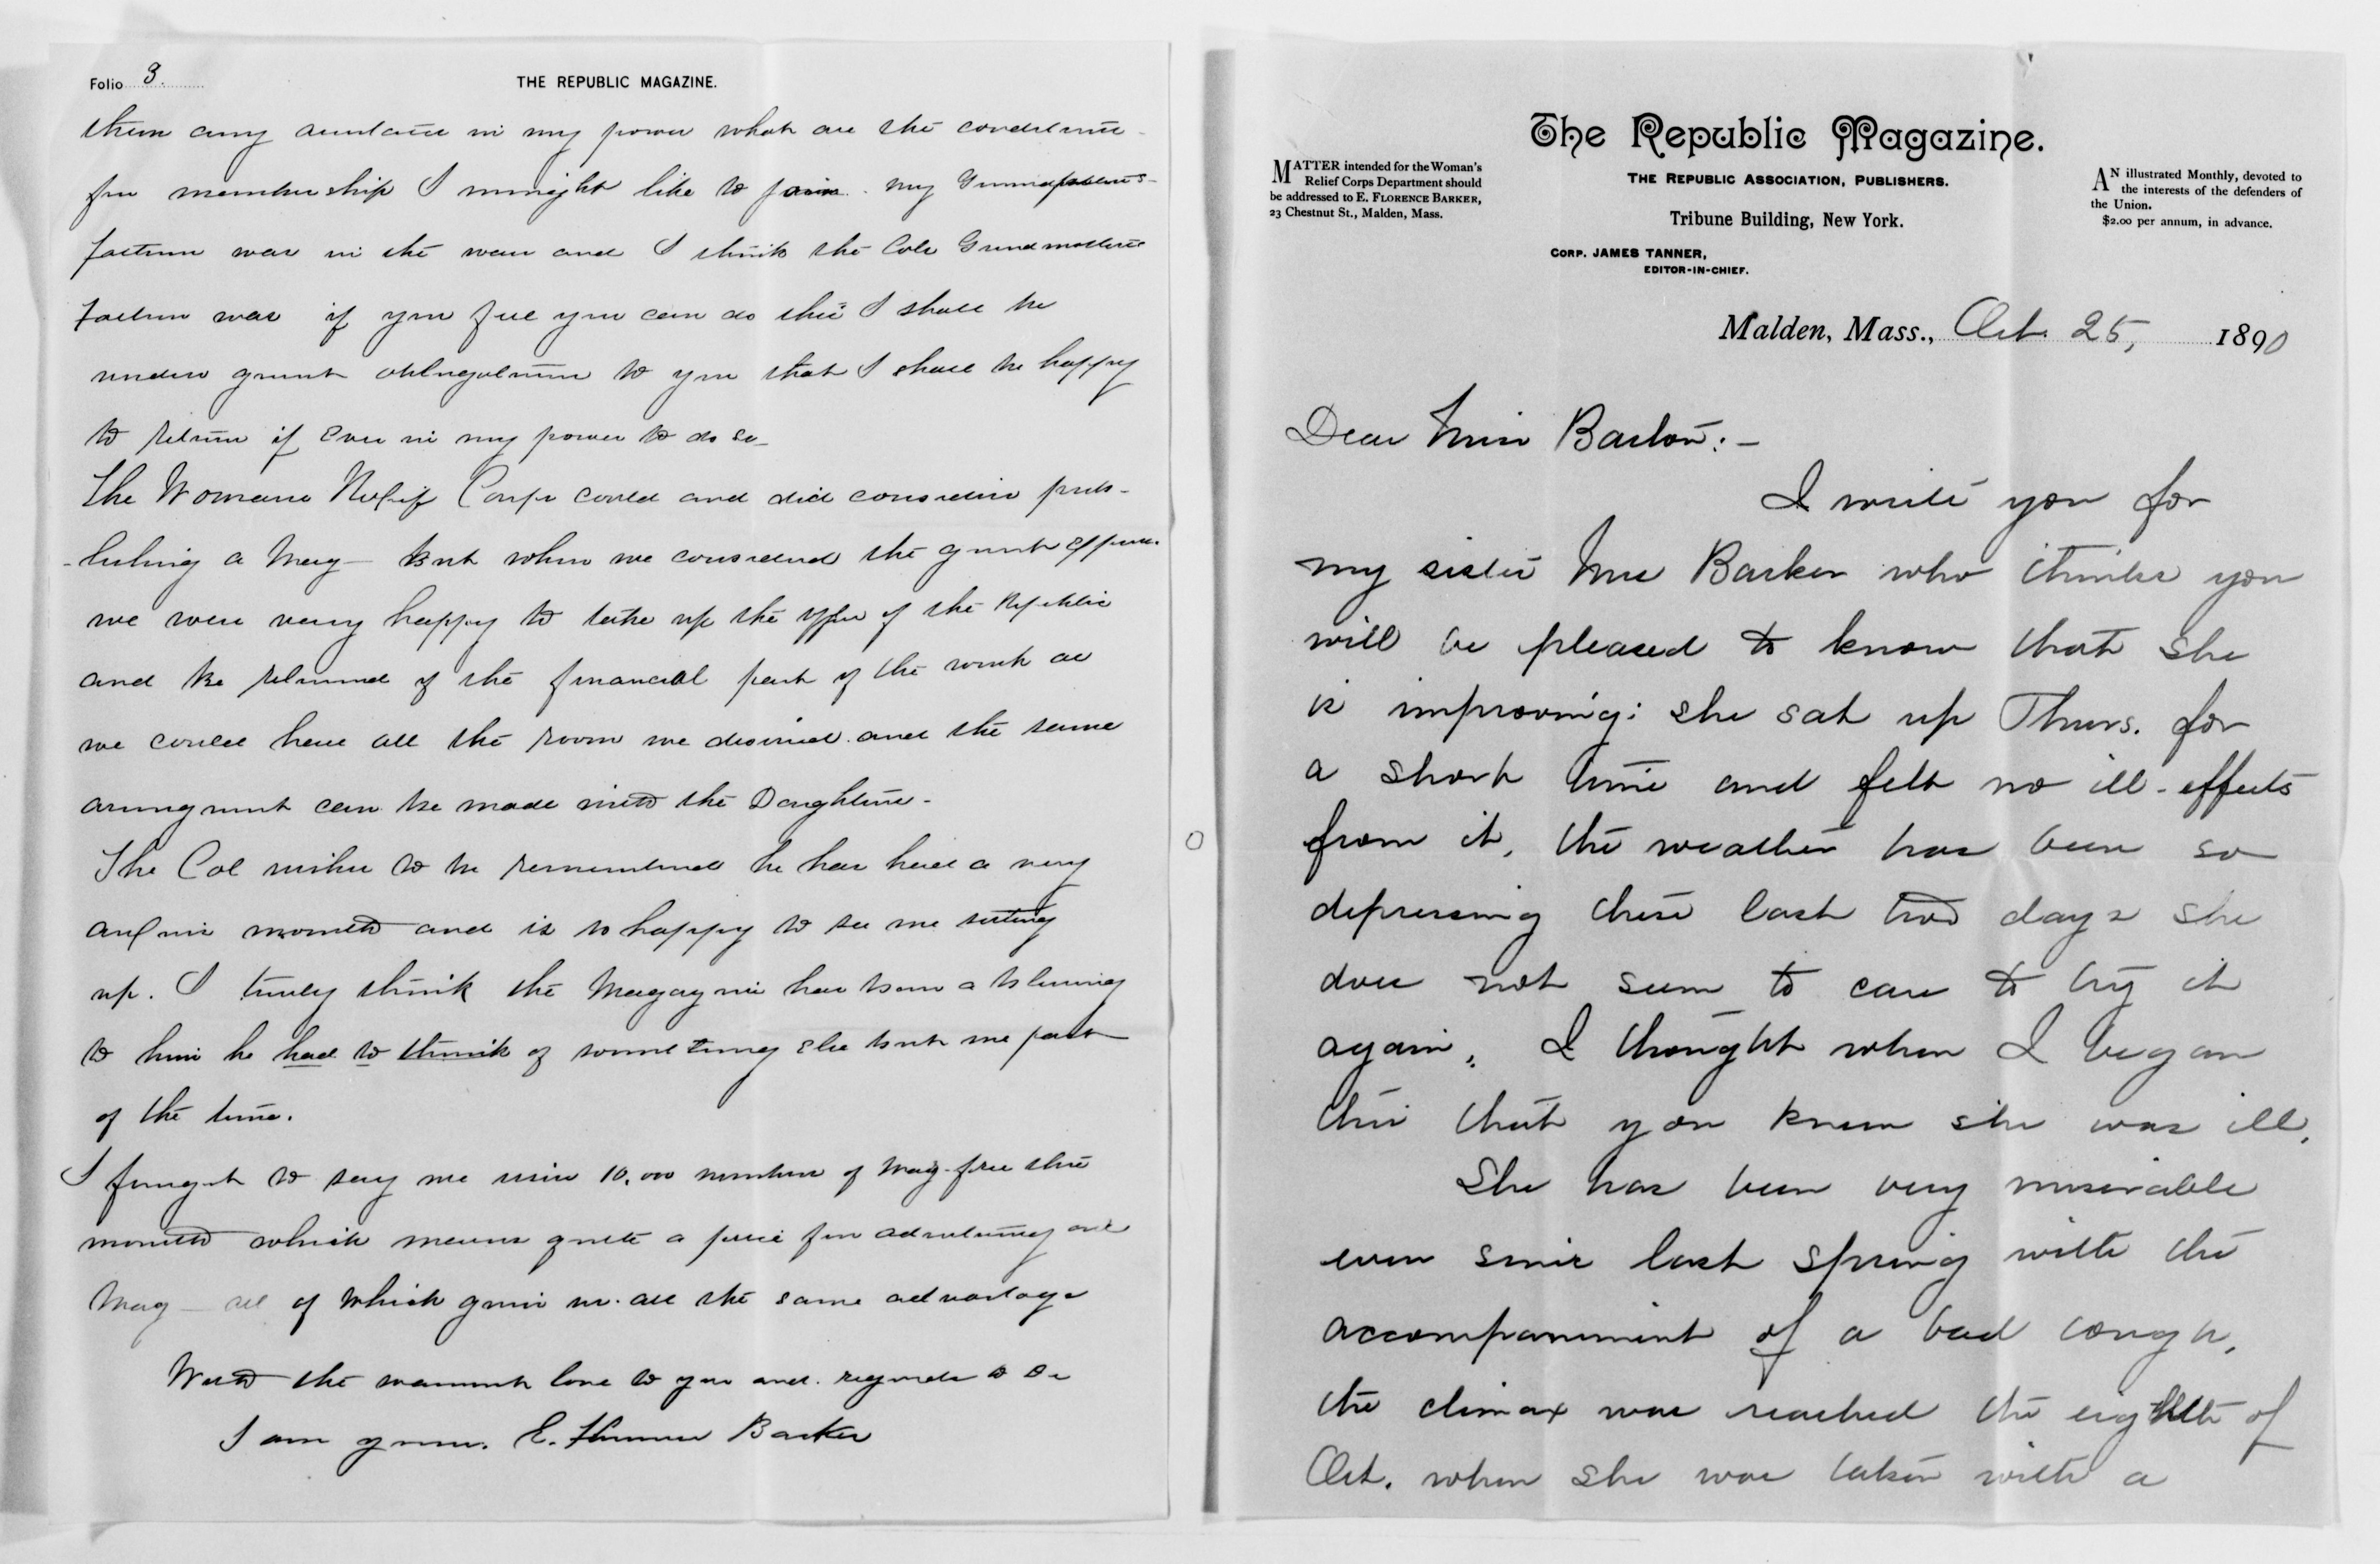 Folio 3.
THE REPUBLIC MAGAZINE.
them any assistance in my power what are the conditions
for membership I might like to join. My Grandfathers
father was in the war and I think the Cols Grandmothers
father was if you feel you can do this I shall be
under great obligation to you that I shall be happy
to return if ever in my power to do so—
The Womans Relief Corps could and did consider pub-
-lishing a Mag— but when we considered the great
we were very happy to take up the offer of the Republic
and be relieved of the financial part of the work as
we could have all the room we desired. and the same
arrangement can be made with the Daughters.
The Col wishes to be remembered he has had a very
month and is so happy to see me sitting
up. I truly think the Magazine has been a blessing
to him he had to think of something else but me part
of the time.
I forgot to say we issue 10,000 numbers of Mag. free this
month which means quite a for advertising our
Mag— all of which give us. all the same advantage
With the warmest love to you and. regards to Dr
I am yours. E. Florence Barker
The Republic Magazine.
MATTER intended for the Woman's
Relief Corps Department should
be addressed to E. FLORENCE BARKER,
23 Chestnut St., Malden, Mass.
THE REPUBLIC ASSOCIATION, PUBLISHERS.
Tribune Building, New York.
CORP. JAMES TANNER,
EDITOR-IN-CHIEF.
AN illustrated Monthly, devoted to
the interests of the defenders of
the Union.
$2.00 per annum, in advance.
Malden, Mass., Oct. 25, 1890
Dear Miss Barton:—
I write you for
my sister Mrs Barker who thinks you
will be pleased to know that she
is improving: she sat up Thurs. for
a short time and felt no ill-effects
from it, the weather has been so
depressing these last two days she
does not seem to care to try it
again. I thought when I began
this that you knew she was ill.
She has been very miserable
ever since last spring with the
accompaniment of a bad cough,
the climax was reached the eighth of
Oct. when she was taken with a